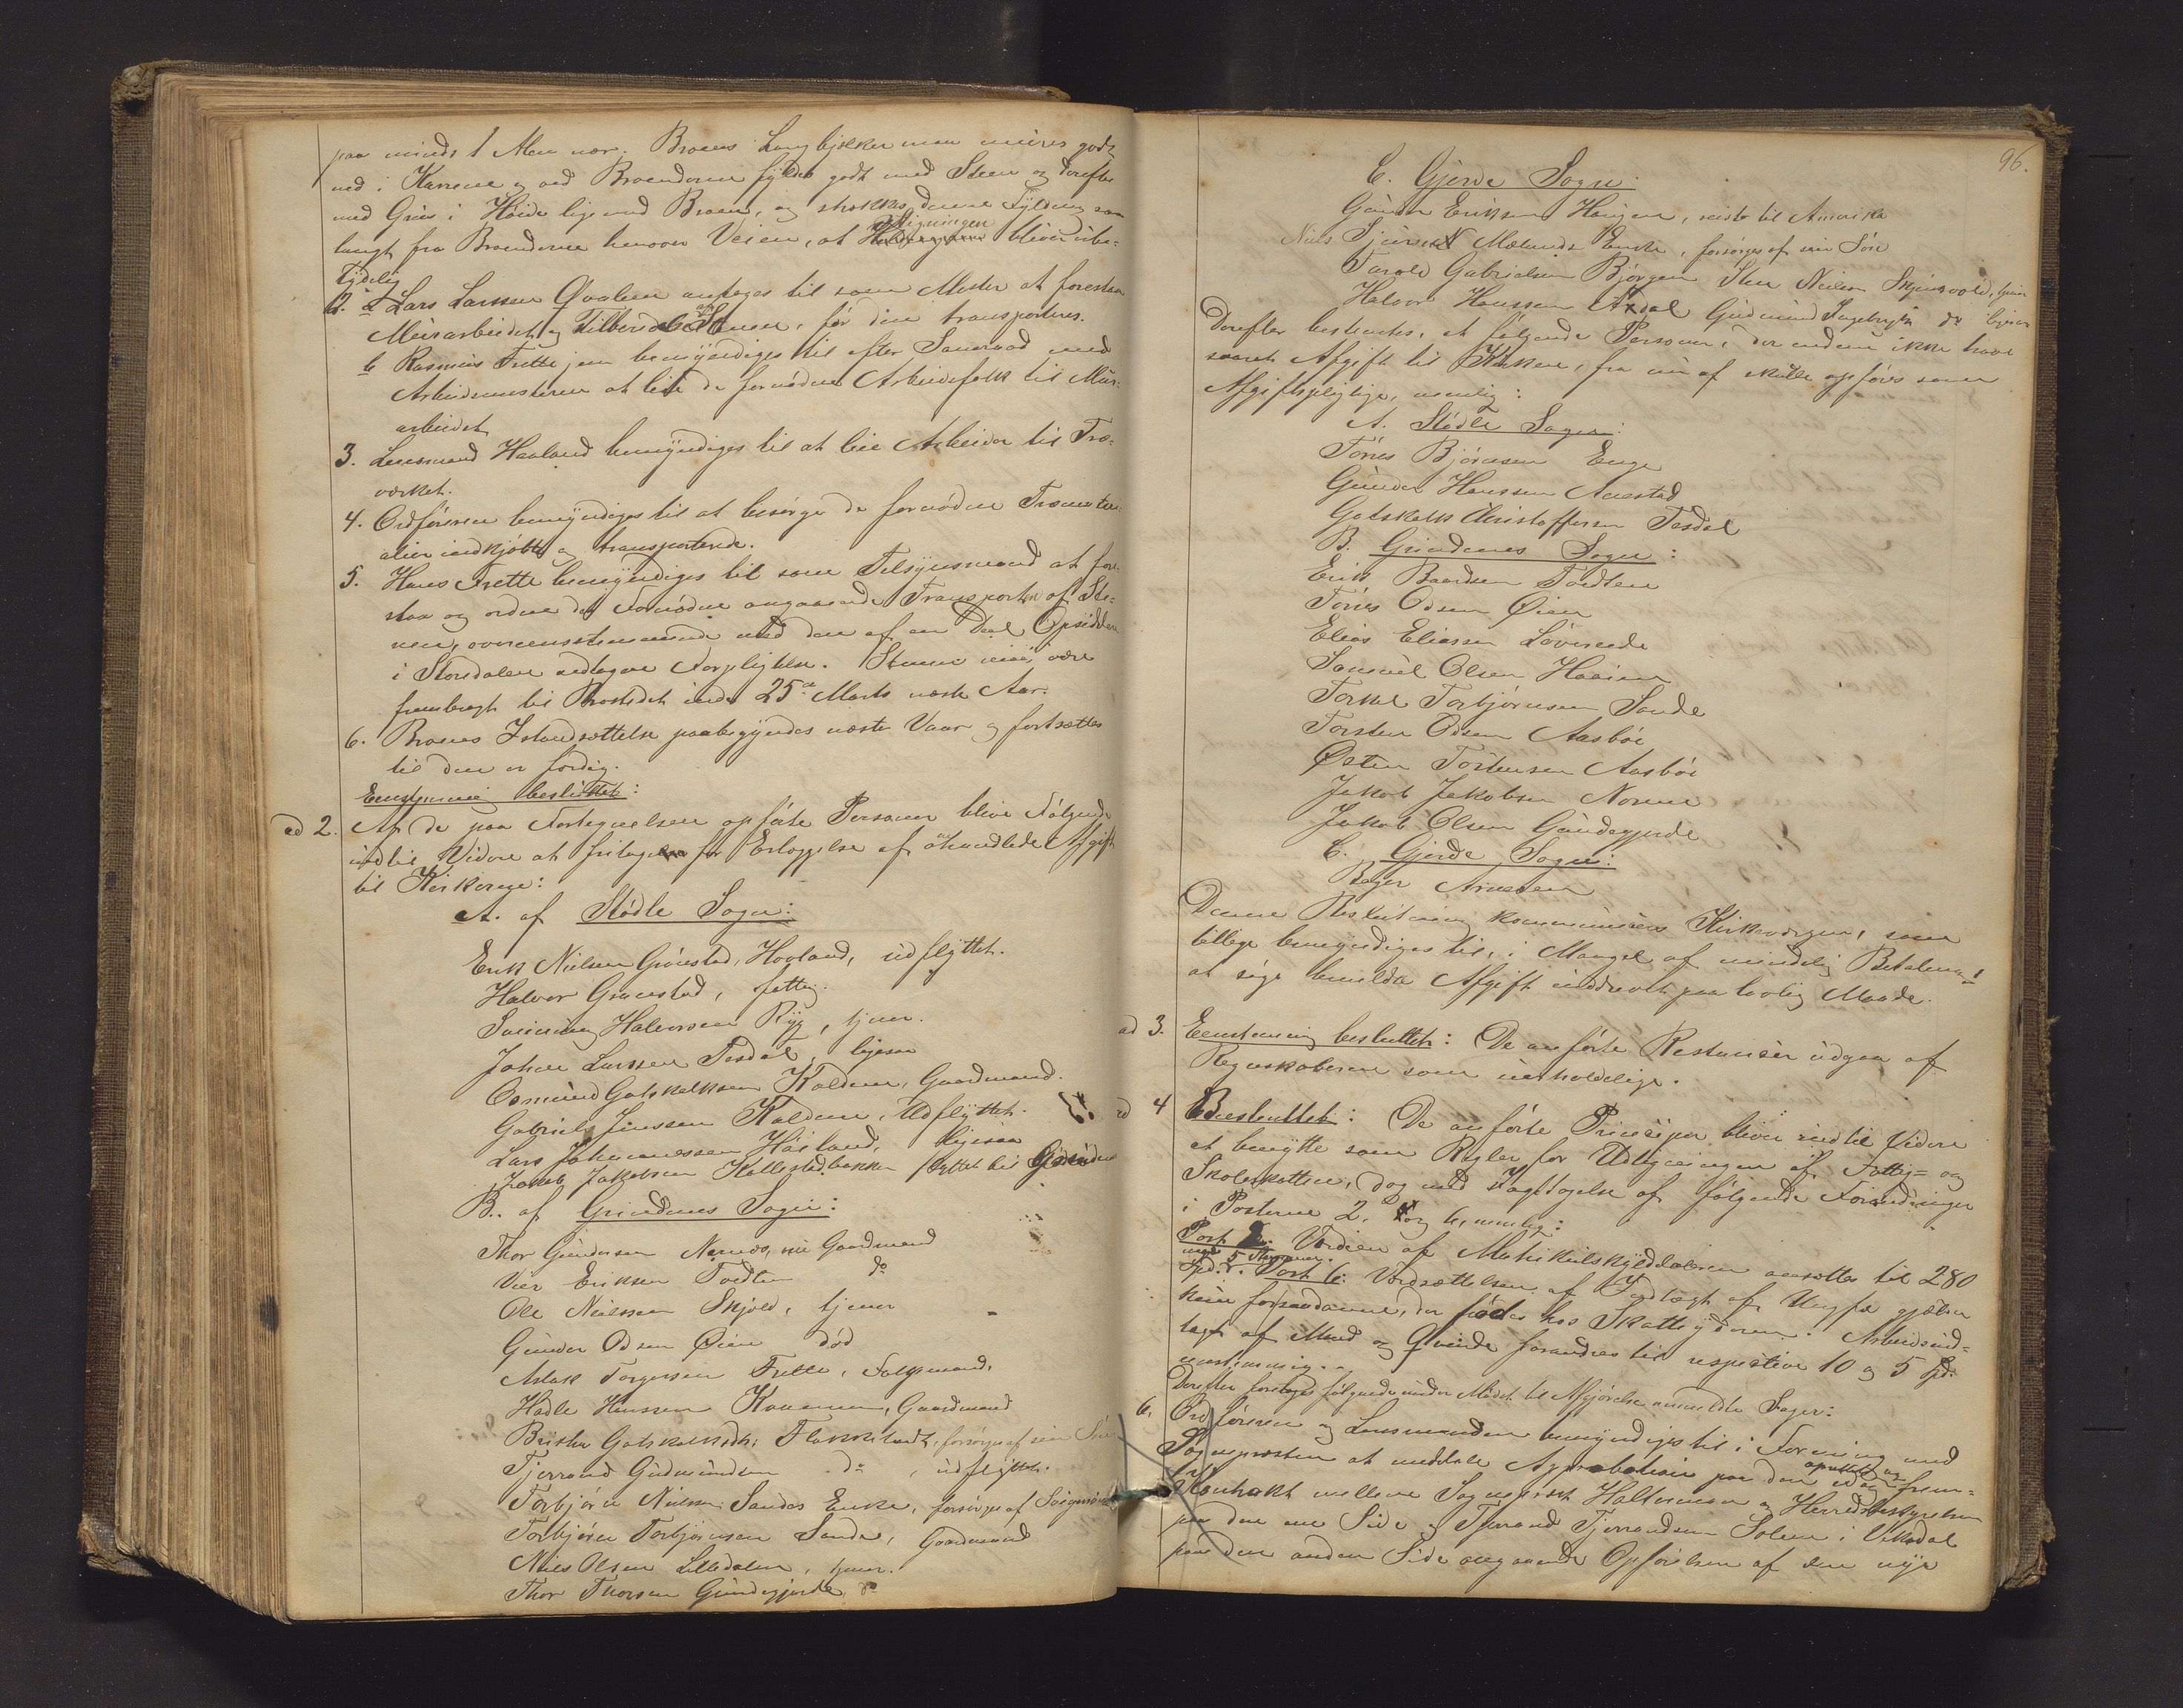 paa mindst 1 Alen nær. Broens Langbjelker maa mures godt
ned i Karrene og ved Broenderne fyldes godt med Steen og derefter
med Gruus i Høide lige med Broen, og strækkes denne Fyldning saa
langt fra Broenderne henover Veien, at Stigningen bliver ube-
tydelig
2. a Lars Larssen Qvalen antages til som Mester at forestaa
Muurarbeidet og Tilberedelse af Stenen, før den transporteres.
b Rasmus Frette jun bemyndiges til efter Samraad med
Arbeidsmesteren at leie de fornødne Arbeidsfolk til Muur-
arbeidet
3. Lensmand Haaland bemyndiges til at leie Arbeidere til Træ-
værket.
4. Ordføreren bemyndiges til at besørge de fornødne Træmateri-
alier indkjøbte og transporterede.
5. Hans Frette bemyndiges til som Tilsynsmand at fore-
staa og ordne det Fornødne angaaende Transporten af Ste-
nen, overensstemmende med den af en Deel Opsiddere
i Stordalen vedtagne Forpligtelse. Stenen maa være
frembragt til Brostedet inden 25de Marts næste Aar.
6. Broens Istandsættelse paabegyndes næste Vaar og fortsættes
til den er færdig.
Eenstemmig besluttet:
ad 2. Af de paa Fortegnelsen opførte Personer blive Følgende
indtil Videre at fritage for Erlæggelse af omhandlede Afgift
til Kirkerne:
A. af Stødle Sogn:
Erik Nielsen Grönstad, Hovland, udflyttet.
Halvor Graaestad, fattig.
Svein Halvorsen Ryg, tjener.
Johan Larssen Tesdal, ligesaa
Osmund Gotskalksen Kaldem, Gaardmand.
Gabriel Jenssen Kaldem, Udflyttet.
Lars Johannessen Høiland, ligesaa
Jakob Jakobsen Kallestadbakken flyttet til Grinde
B. af Grindenes Sogn:
Thor Gundersen Nærnæs, nu Gaardmand
Vier Eriksen Tvedten do
Ole Nielssen Skjold, tjener
Gunder Odsen Øien død
Aslak Torgersen Frette, Folgemand.
Hadle Hanssen Kaarinen, Gaardmand
Brithe Gotskalksdtr. Flakkeland, forsørges af sin Søn
Tjerrand Gudmundsen do, udflyttet.
Torbjørn Nielsen Sandes Enke, forsørges af Svigersønnen
Torbjørn Torbjørnsen Sande, Gaardmand
Niels Olsen Lilledalen, tjener.
Thor Thorsen Gundegjerde do
96.
C. Gjerde Sogn:
Gunder Eriksen Haugen, reiste til Amerika
Niels Mælands Enke, forsørges af sin Søn
Tarald Gabrielsen Bjørgen Sten Nielsen Skjensvold, tjener
Halvor Hanssen Axdal Gudmund Ingebrigts. do ligesaa
Derefter bestemtes, at følgende Personer, der endnu ikke have
svaret Afgift til Kirken, fra nu af skulle opføres som
Afgiftspligtige, nemlig:
A. Stødle Sogn:
Tørres Bjørnsen Enge
Gunder Hanssen Aarestad
Gotskalk Christoffersen Tesdal
B. Grindenes Sogn:
Erik Baardsen Tvedten
Tørres Odsen Øien
Elias Eliassen Løvereide
Samuel Olsen Haaien
Torkel Torbjørnsen Sande
Torsten Odsen Aasbøe
Østen Torstensen Aasbøe
Jakob Jakobsen Norene
Jakob Olsen Gundegjerde
C. Gjerde Sogn:
Birger Arnesen
Denne Beslutning kommuniceres Kirkeværgen, som
tillige bemyndiges til, i Mangel af mindelig Betaling,
at søge bemeldte Afgift inddrevet paa lovlig Maade.
ad 3. Eenstemmig besluttet: De anførte Restancer udgaa af
Regnskaberne som uerholdelige.
ad 4 Besluttet: De anførte Principer blive indtil Videre
at benytte som Regler for Udligningen af Fattig- og
Skoleskatten, dog med Iagttagelse af følgende Forandringer
i Posterne 2, og 6, nemlig:
Post 2. Værdien af Matrikulskylddaleren ansættes til 280
Spd. mod 5 Stemmer. Post 6: Værdsættelsen af Indtægt af Ungfæ gjælder
kun for saadanne, der fødes hos Skatteyderen. Arbeidsind-
tægt af Mand og Qvinde forandres til respective 10 og 5 Spd.
eenstemmig.
Derefter foretoges følgende under Mødet til Afgjørelse anmeldte Sager:
6. Ordføreren og Lensmanden bemyndiges til i Forening med
Sognepresten at meddele Approbation paa den oprettede og frem-
Kontrakt mellem Sogneprest Halterman og Herredsbestyrelsen
paa den ene Side og Tjerand Tjerrandsen Solem i Vikedal
paa den anden Side angaaende Opførelsen af den nye